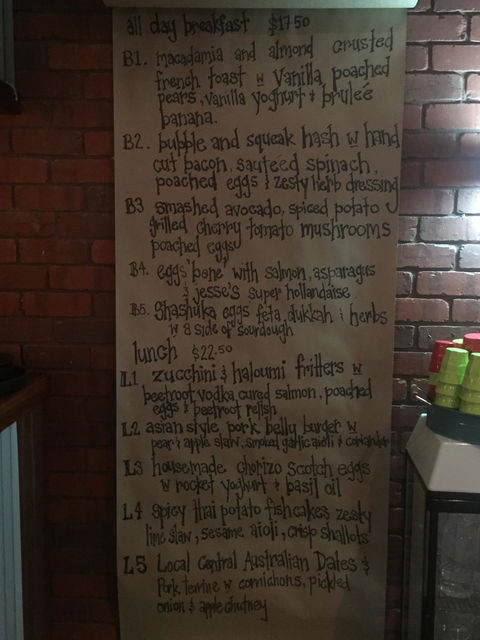 all day breakfast $17.50
B1. macadamia and almond crusted
french toast w vanilla poached
pears, vanilla yoghurt & bruleé
banana.
B2. bubble and squeak hash w hand
cut bacon, sautéed spinach,
poached eggs & zesty herb dressing
B3 smashed avocado, spiced potato
grilled cherry tomato mushrooms
poached eggs
B4. eggs 'bene' with salmon, asparagus
& jesse's super hollandaise
B5. Shashuka eggs feta, dukkah & herbs
w a side of sourdough
lunch $22.50
L1 zucchini & haloumi fritters w
beetroot vodka cured salmon, poached
eggs & beetroot relish
L2 asian style pork belly burger w
pear & apple slaw, smoked garlic aioli & coriander
L3 housemade chorizo scotch eggs
w rocket yoghurt & basil oil
L4 spicy thai potato fishcakes zesty
lime slaw, sesame aioli, crisp shallots
L5 Local Central Australian Dates &
Pork terrine w cornichons, pickled
onion & apple chutney